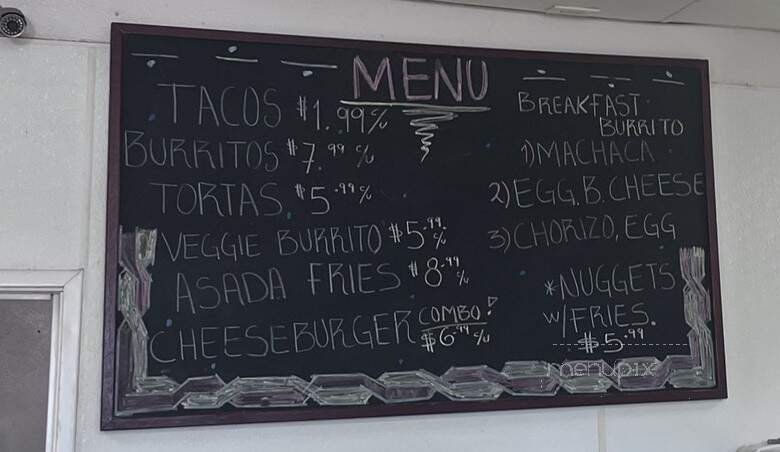 MENU
TACOS $1.99%
BURRITOS $7.99%
TORTAS $5.99%
VEGGIE BURRITO $5.99%
ASADA FRIES $8.99%
CHEESEBURGER COMBO! $6.99%
BREAKFAST
BURRITO
1) MACHACA
2) EGG, B. CHEESE
3) CHORIZO, EGG
*NUGGETS
W/FRIES.
$5.99
menupix